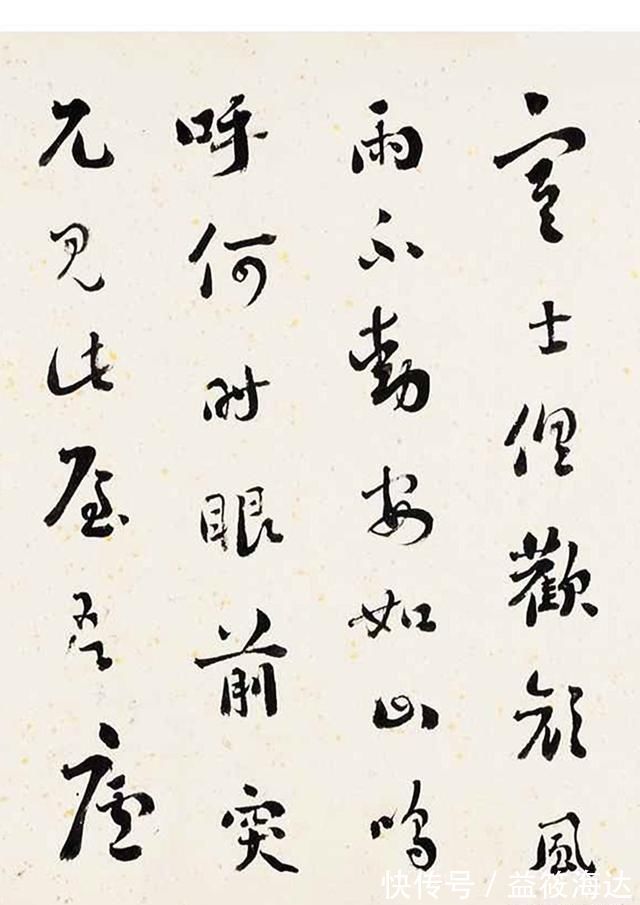 寒士俱歡顏風
雨不動安如山嗚
呼何時眼前突
兀見此屋吾廬
快传号/益筱海达